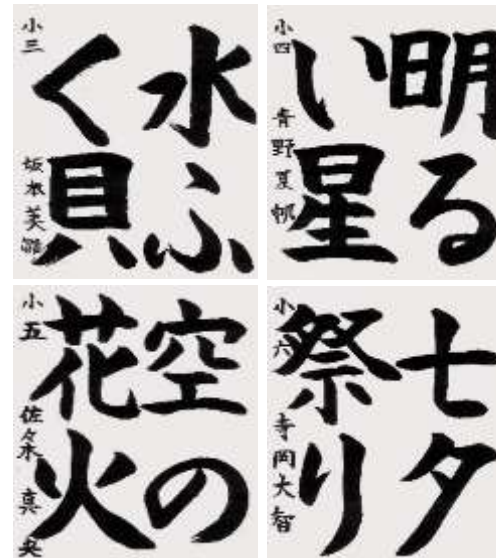 水ふ
く貝
小三 坂本美
明る
い星
小四 青野夏帆
空の
花火
小五 佐々木真央
七夕
祭り
小六 寺岡大智